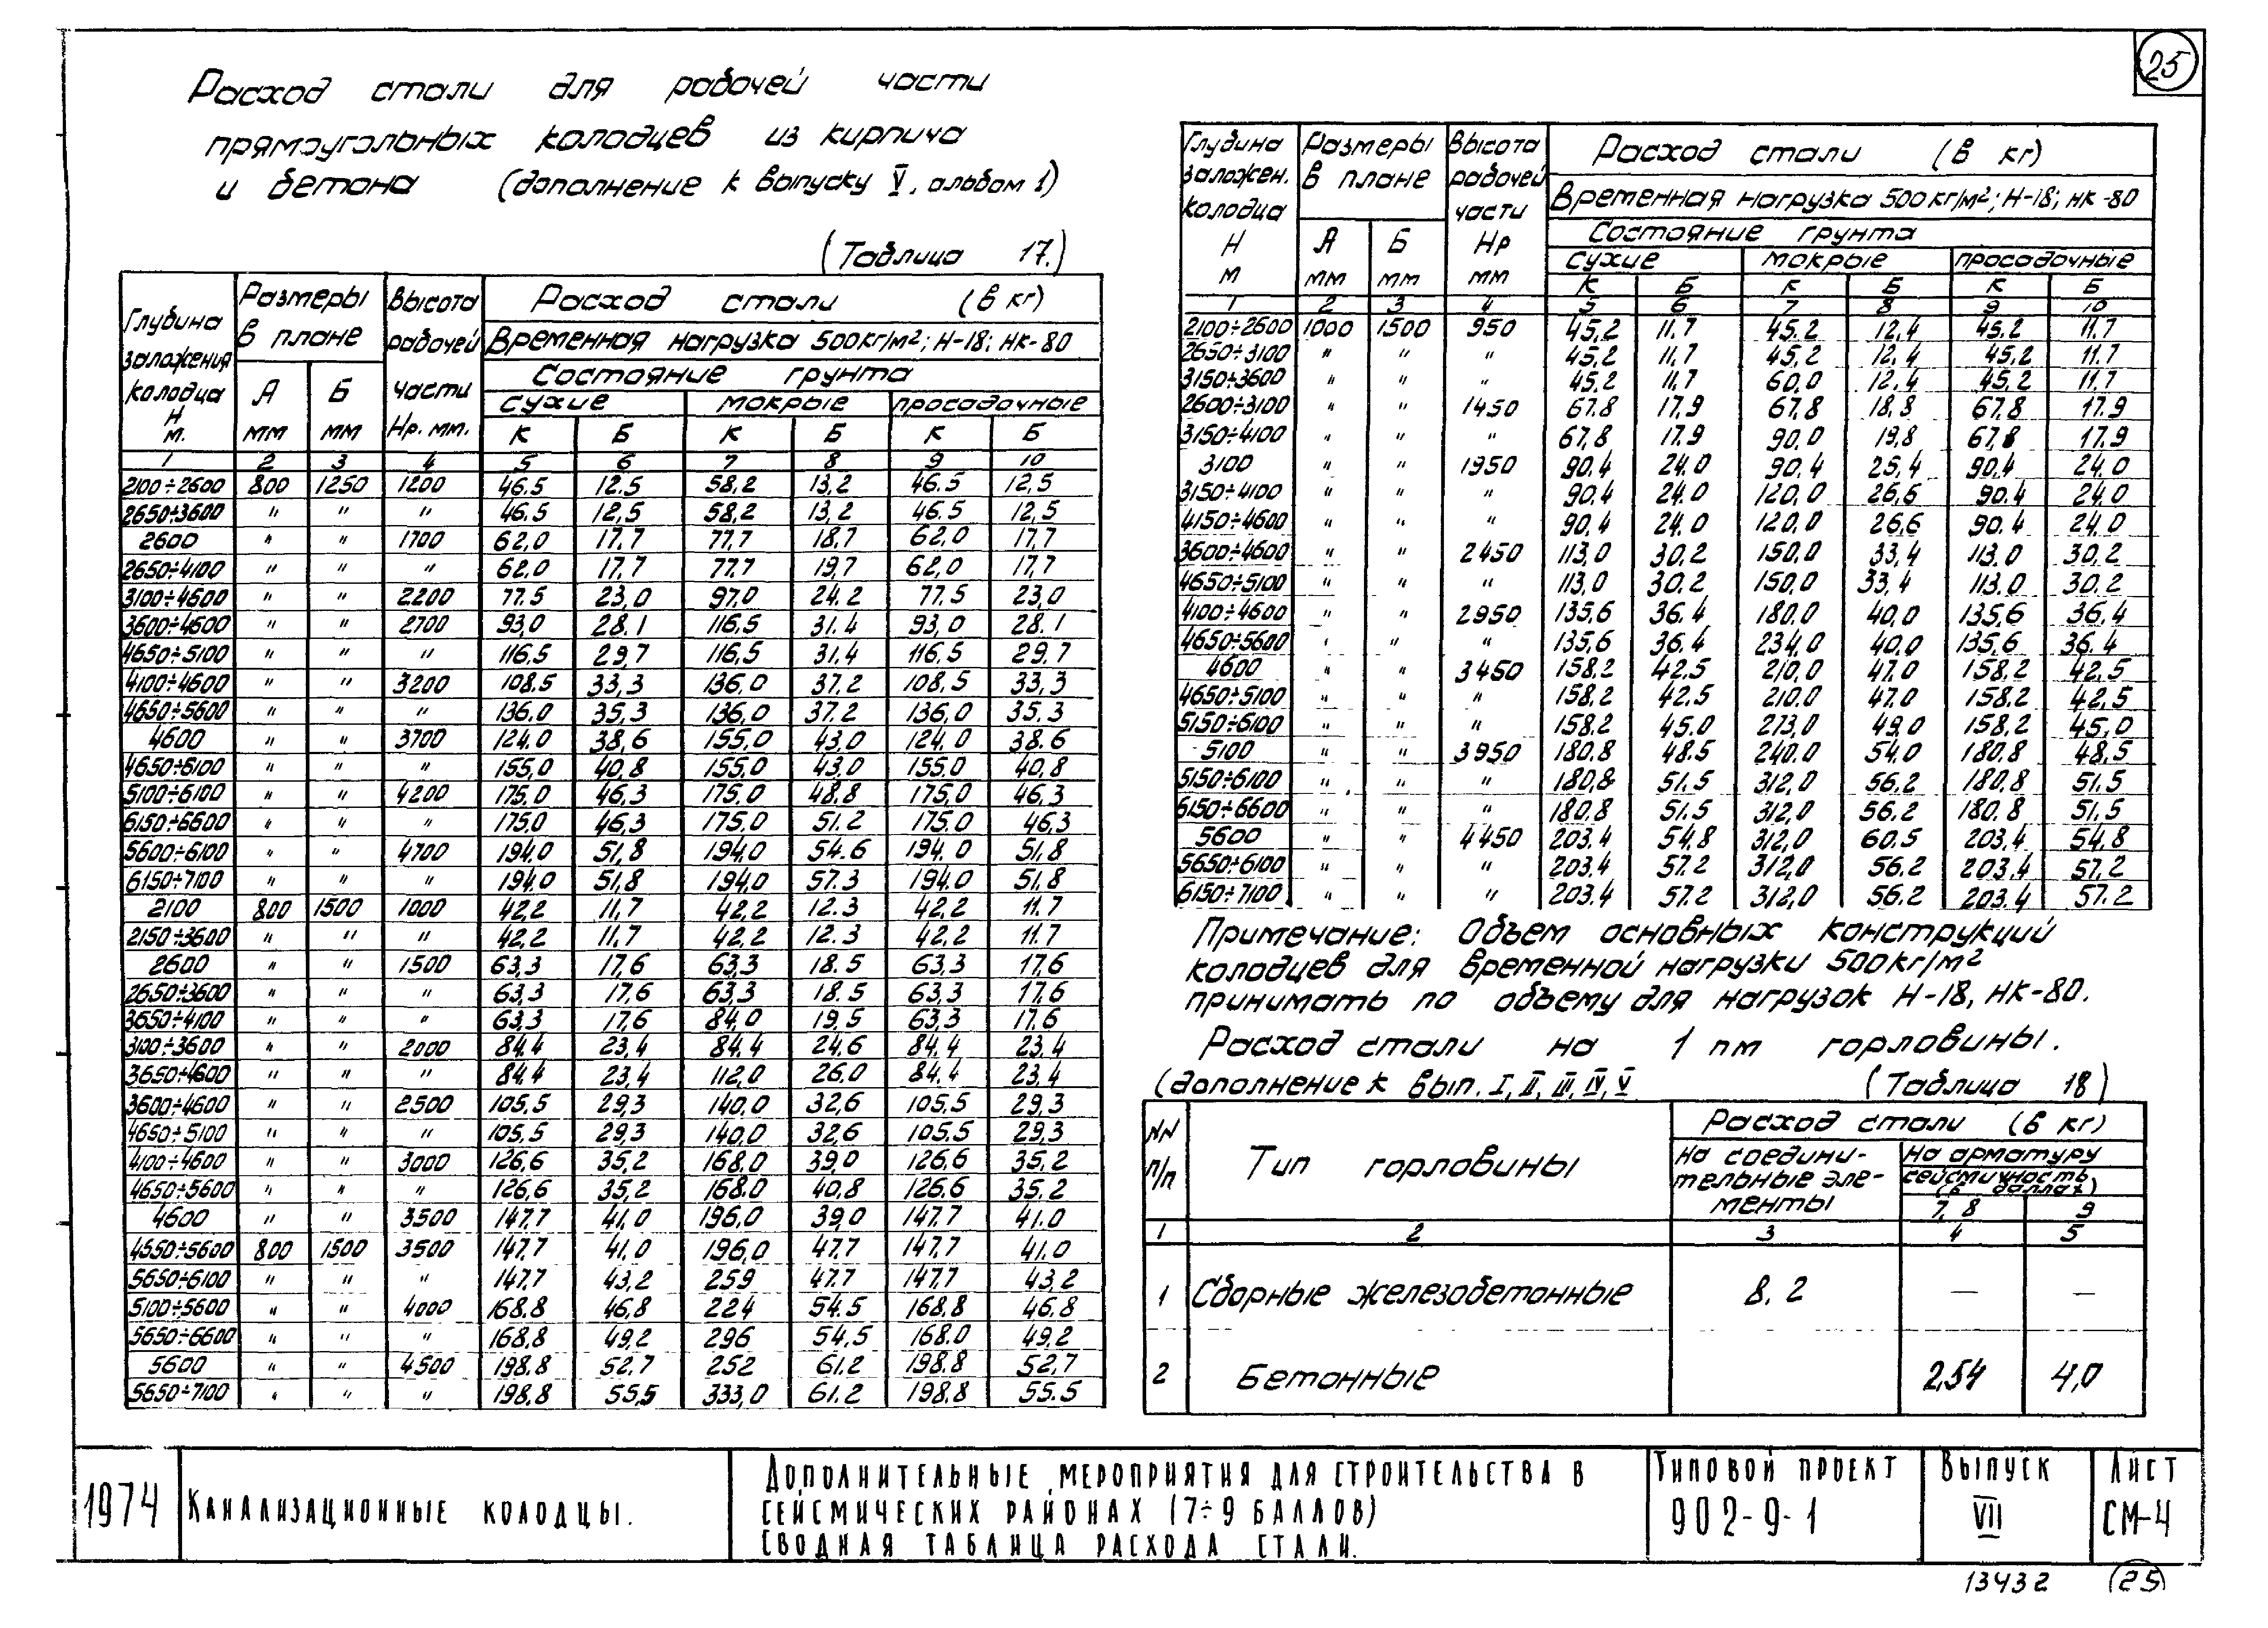 25
Расход стали для рабочей части
прямоугольных колодцев из кирпича
и бетона (дополнение к выпуску V, альбом 1)
(Таблица 17.)
Глубина заложения колодца Н м. | Размеры в плане | Высота рабочей части Нр. мм. | Расход стали (в кг)
Временная нагрузка 500кг/м²; Н-18; НК-80
Состояние грунта
А мм | Б мм | сухие | мокрые | просадочные
К | Б | К | Б | К | Б
1 2 3 4 5 6 7 8 9 10
2100÷2600 800 1250 1200 46.5 12.5 58.2 13.2 46.5 12,5
2650÷3600 " " " 46.5 12,5 58.2 13.2 46.5 12,5
2600 " " 1700 62,0 17.7 77.7 18.7 62,0 17,7
2650÷4100 " " " 62.0 17.7 77.7 19,7 62,0 17.7
3100÷4600 " " 2200 77.5 23,0 97.0 24.2 77.5 23,0
3600÷4600 " " 2700 93,0 28.1 116,5 31.4 93,0 28.1
4650÷5100 " " " 116.5 29,7 116,5 31,4 116,5 29.7
4100÷4600 " " 3200 108.5 33,3 136,0 37.2 108,5 33,3
4650÷5600 " " " 136.0 35.3 136,0 37.2 136,0 35.3
4600 " " 3700 124.0 38,6 155,0 43,0 124.0 38.6
4650÷6100 " " " 155,0 40,8 155.0 43.0 155.0 40,8
5100÷6100 " " 4200 175.0 46,3 175.0 48.8 175,0 46,3
6150÷6600 " " " 175.0 46,3 175,0 51.2 175.0 46,3
5600÷6100 " " 4700 194.0 51,8 194,0 54.6 194.0 51,8
6150÷7100 " " " 194.0 51,8 194,0 57.3 194,0 51,8
2100 800 1500 1000 42,2 11,7 42,2 12.3 42,2 11.7
2150÷3600 " " " 42,2 11,7 42,2 12.3 42,2 11.7
2600 " " 1500 63,3 17,6 63,3 18.5 63,3 17,6
2650÷3600 " " " 63,3 17,6 63,3 18.5 63,3 17.6
3650÷4100 " " " 63,3 17,6 84,0 19.5 63,3 17.6
3100÷3600 " " 2000 84.4 23,4 84,4 24,6 84,4 23.4
3650÷4600 " " " 84.4 23,4 112,0 26.0 84,4 23,4
3600÷4600 " " 2500 105,5 29,3 140,0 32,6 105,5 29,3
4650÷5100 " " " 105,5 29,3 140,0 32,6 105.5 29,3
4100÷4600 " " 3000 126,6 35,2 168,0 39,0 126,6 35,2
4650÷5600 " " " 126,6 35,2 168.0 40,8 126.6 35,2
4600 " " 3500 147.7 41,0 196,0 39,0 147.7 41.0
4650÷5600 800 1500 3500 147.7 41,0 196,0 47.7 147.7 41.0
5650÷6100 " " " 147.7 43,2 259 47.7 147.7 43,2
5100÷5600 " " 4000 168.8 46,8 224 54.5 168.8 46.8
5650÷6600 " " " 168.8 49,2 296 54,5 168.0 49,2
5600 " " 4500 198.8 52,7 252 61.2 198.8 52,7
5650÷7100 " " " 198.8 55,5 333,0 61.2 198.8 55.5
Глубина заложен. колодца Н м | Размеры в плане | Высота рабочей части Нр мм | Расход стали (в кг)
Временная нагрузка 500кг/м²; Н-18; НК-80
Состояние грунта
А мм | Б мм | сухие | мокрые | просадочные
К | Б | К | Б | К | Б
1 2 3 4 5 6 7 8 9 10
2100÷2600 1000 1500 950 45,2 11.7 45.2 12,4 45.2 11.7
2650÷3100 " " " 45,2 11,7 45,2 12,4 45,2 11.7
3150÷3600 " " " 45,2 11,7 60,0 12,4 45,2 11.7
2600÷3100 " " 1450 67.8 17,9 67,8 18,8 67.8 17.9
3150÷4100 " " " 67,8 17.9 90,0 19,8 67,8 17.9
3100 " " 1950 90.4 24.0 90.4 25,4 90,4 24,0
3150÷4100 " " " 90.4 24.0 120,0 26,6 90.4 24.0
4150÷4600 " " " 90,4 24.0 120,0 26.6 90.4 24.0
3600÷4600 " " 2450 113,0 30,2 150,0 33,4 113.0 30,2
4650÷5100 " " " 113,0 30.2 150,0 33,4 113.0 30,2
4100÷4600 " " 2950 135,6 36,4 180,0 40,0 135,6 36,4
4650÷5600 " " " 135,6 36.4 234,0 40,0 135,6 36.4
4600 " " 3450 158.2 42.5 210,0 47.0 158,2 42,5
4650÷5100 " " " 158,2 42.5 210.0 47.0 158,2 42,5
5150÷6100 " " " 158.2 45.0 273,0 49,0 158,2 45,0
5100 " " 3950 180.8 48.5 240.0 54,0 180,8 48,5
5150÷6100 " " " 180,8 51.5 312,0 56.2 180,8 51.5
6150÷6600 " " " 180.8 51.5 312,0 56.2 180.8 51,5
5600 " " 4450 203.4 54,8 312,0 60.5 203.4 54.8
5650÷6100 " " " 203.4 57.2 312,0 56.2 203.4 57.2
6150÷7100 " " " 203.4 57.2 312,0 56.2 203.4 57.2
Примечание: Объем основных конструкций
колодцев для временной нагрузки 500кг/м²
принимать по объему для нагрузок Н-18, НК-80.
Расход стали на 1 пм горловины.
(дополнение к вып. I, II, III, IV, V (Таблица 18)
NN п/п | Тип горловины | Расход стали (в кг)
На соедини-
тельные эле-
менты
На арматуру
сейсмичность
(в баллах)
7, 8 | 9
1 2 3 4 5
1 Сборные железобетонные 8.2 — —
2 Бетонные 2,54 4,0
1974
Канализационные колодцы.
Дополнительные мероприятия для строительства в
сейсмических районах (7÷9 баллов)
Сводная таблица расхода стали.
Типовой проект
902-9-1
Выпуск
VII
Лист
СМ-4
13432
25